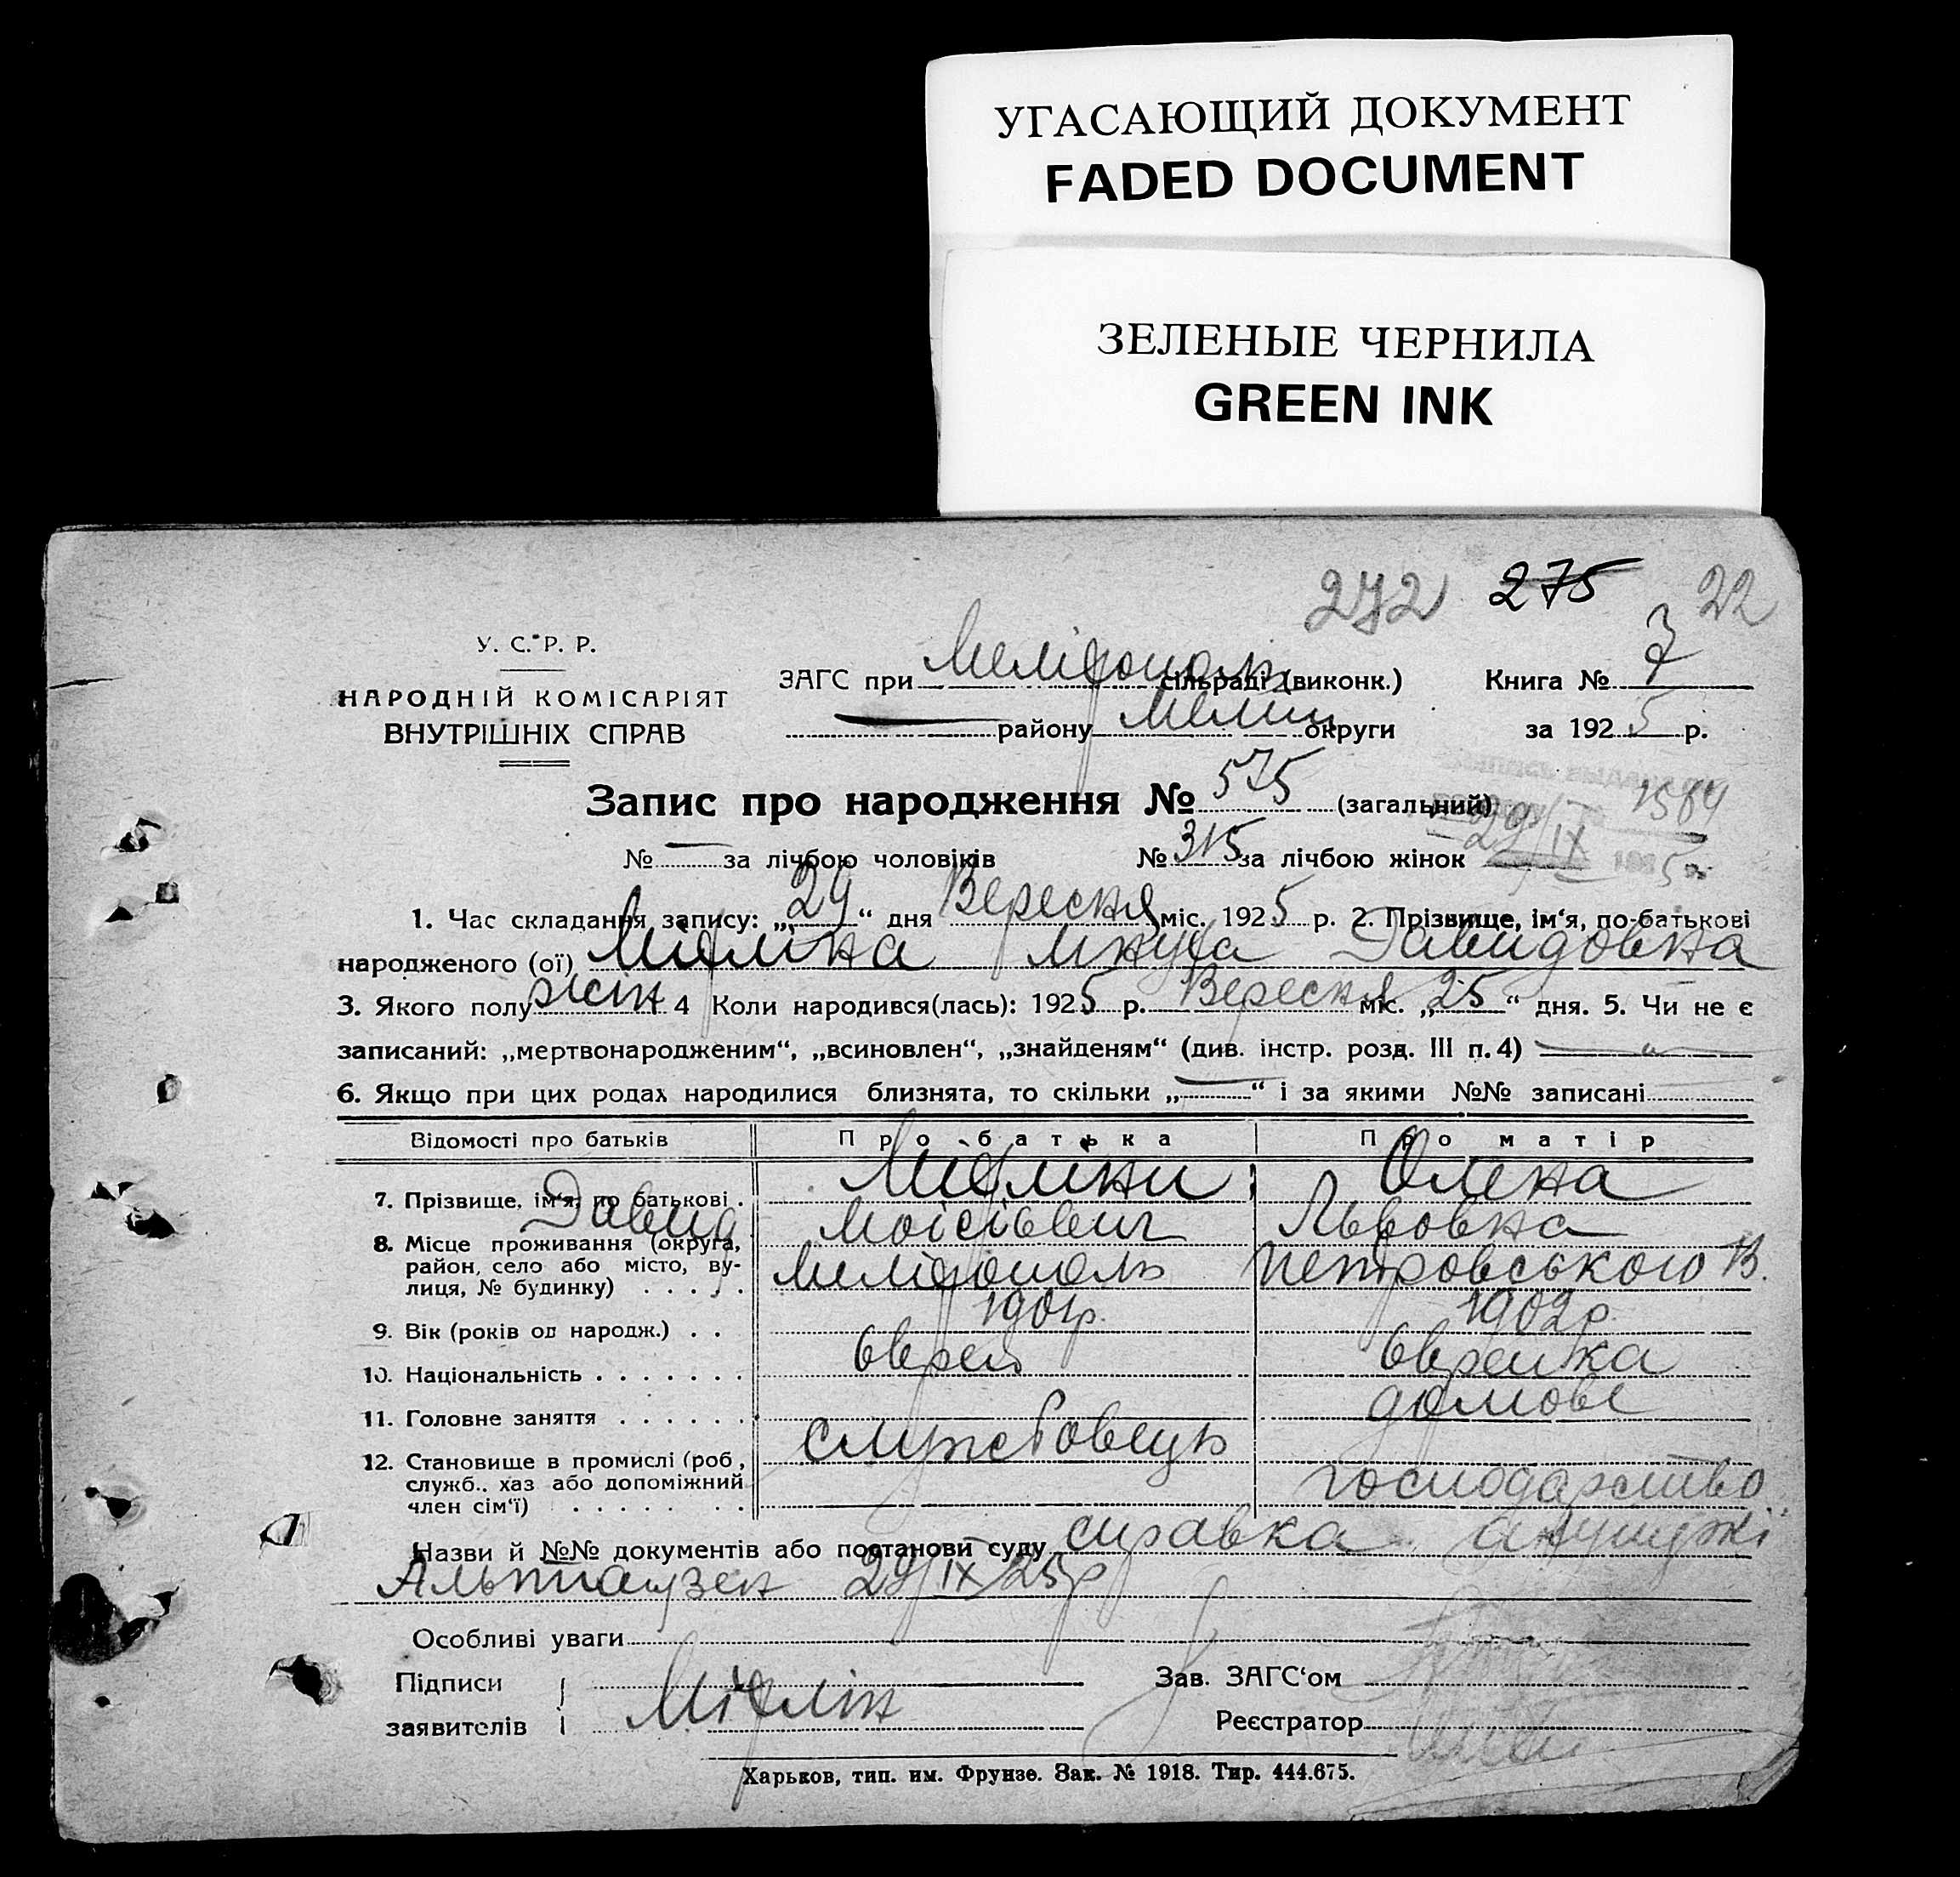 УГАСАЮЩИЙ ДОКУМЕНТ
FADED DOCUMENT
ЗЕЛЕНЫЕ ЧЕРНИЛА
GREEN INK
272 275 22
У. С. Р. Р.
НАРОДНІЙ КОМІСАРІЯТ
ВНУТРІШНІХ СПРАВ
ЗАГС при Мелітополь сільраді (виконк.) Книга № 7
району Мелит округи за 1925 р.
Запис про народження № 575 (загальний)
1584
29/IX 5 р.
№ — за лічбою чоловіків № 315 за лічбою жінок
1. Час складання запису: „29“ дня Вересня міс. 1925 р. 2. Прізвище, ім‘я, по-батькові
народженого (ої) Міфліна Давидовна
3. Якого полу жін 4 Коли народився(лась): 1925 р. Вересня міс. „25“ дня. 5. Чи не є
записаний: „мертвонародженим“, „всиновлен“, „знайденям“ (див. інстр. розд. III п. 4) —
6. Якщо при цих родах народилися близнята, то скільки „—“ і за якими №№ записані
Відомості про батьків Про батька Про матір
7. Прізвище, ім‘я, по батькові . Олена
Давид Моісієвич Львовна
8. Місце проживання (округа, район, село або місто, вулиця, № будинку) . . . . Мелітополь Петровського 13.
9. Вік (років од народж.) . . 1901р. 1902р.
10. Національність . . . . . . . Єврей Єврейка
11. Головне заняття . . . . . . домове
службовець
12. Становище в промислі (роб., служб., хаз або допоміжний член сім‘ї) . . . . . . . . господарство
Назви й №№ документів або постанови суду справка акушерки
Альтгаузен 29/IX 25р
Особливі уваги
Підписи
заявителів Міфлін
Зав. ЗАГС‘ом
Реєстратор
Харьков, тип. им. Фрунзе. Зак. № 1918. Тир. 444.675.